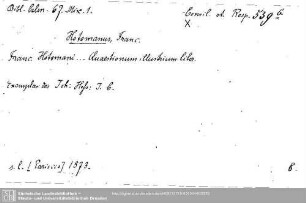 Bibl. Oelsn. 67. Misc. 1.
Consil. et Resp. 539 6
X
Hotomanus, Franc.
Franc. Hotomani ... Quaestionum illustrium liber.
Exemplar des Joh: Hofs: I. C.
s. l. [Parisiis] 1573.
8.
Sächsische Landesbibliothek -
Staats- und Universitätsbibliothek Dresden